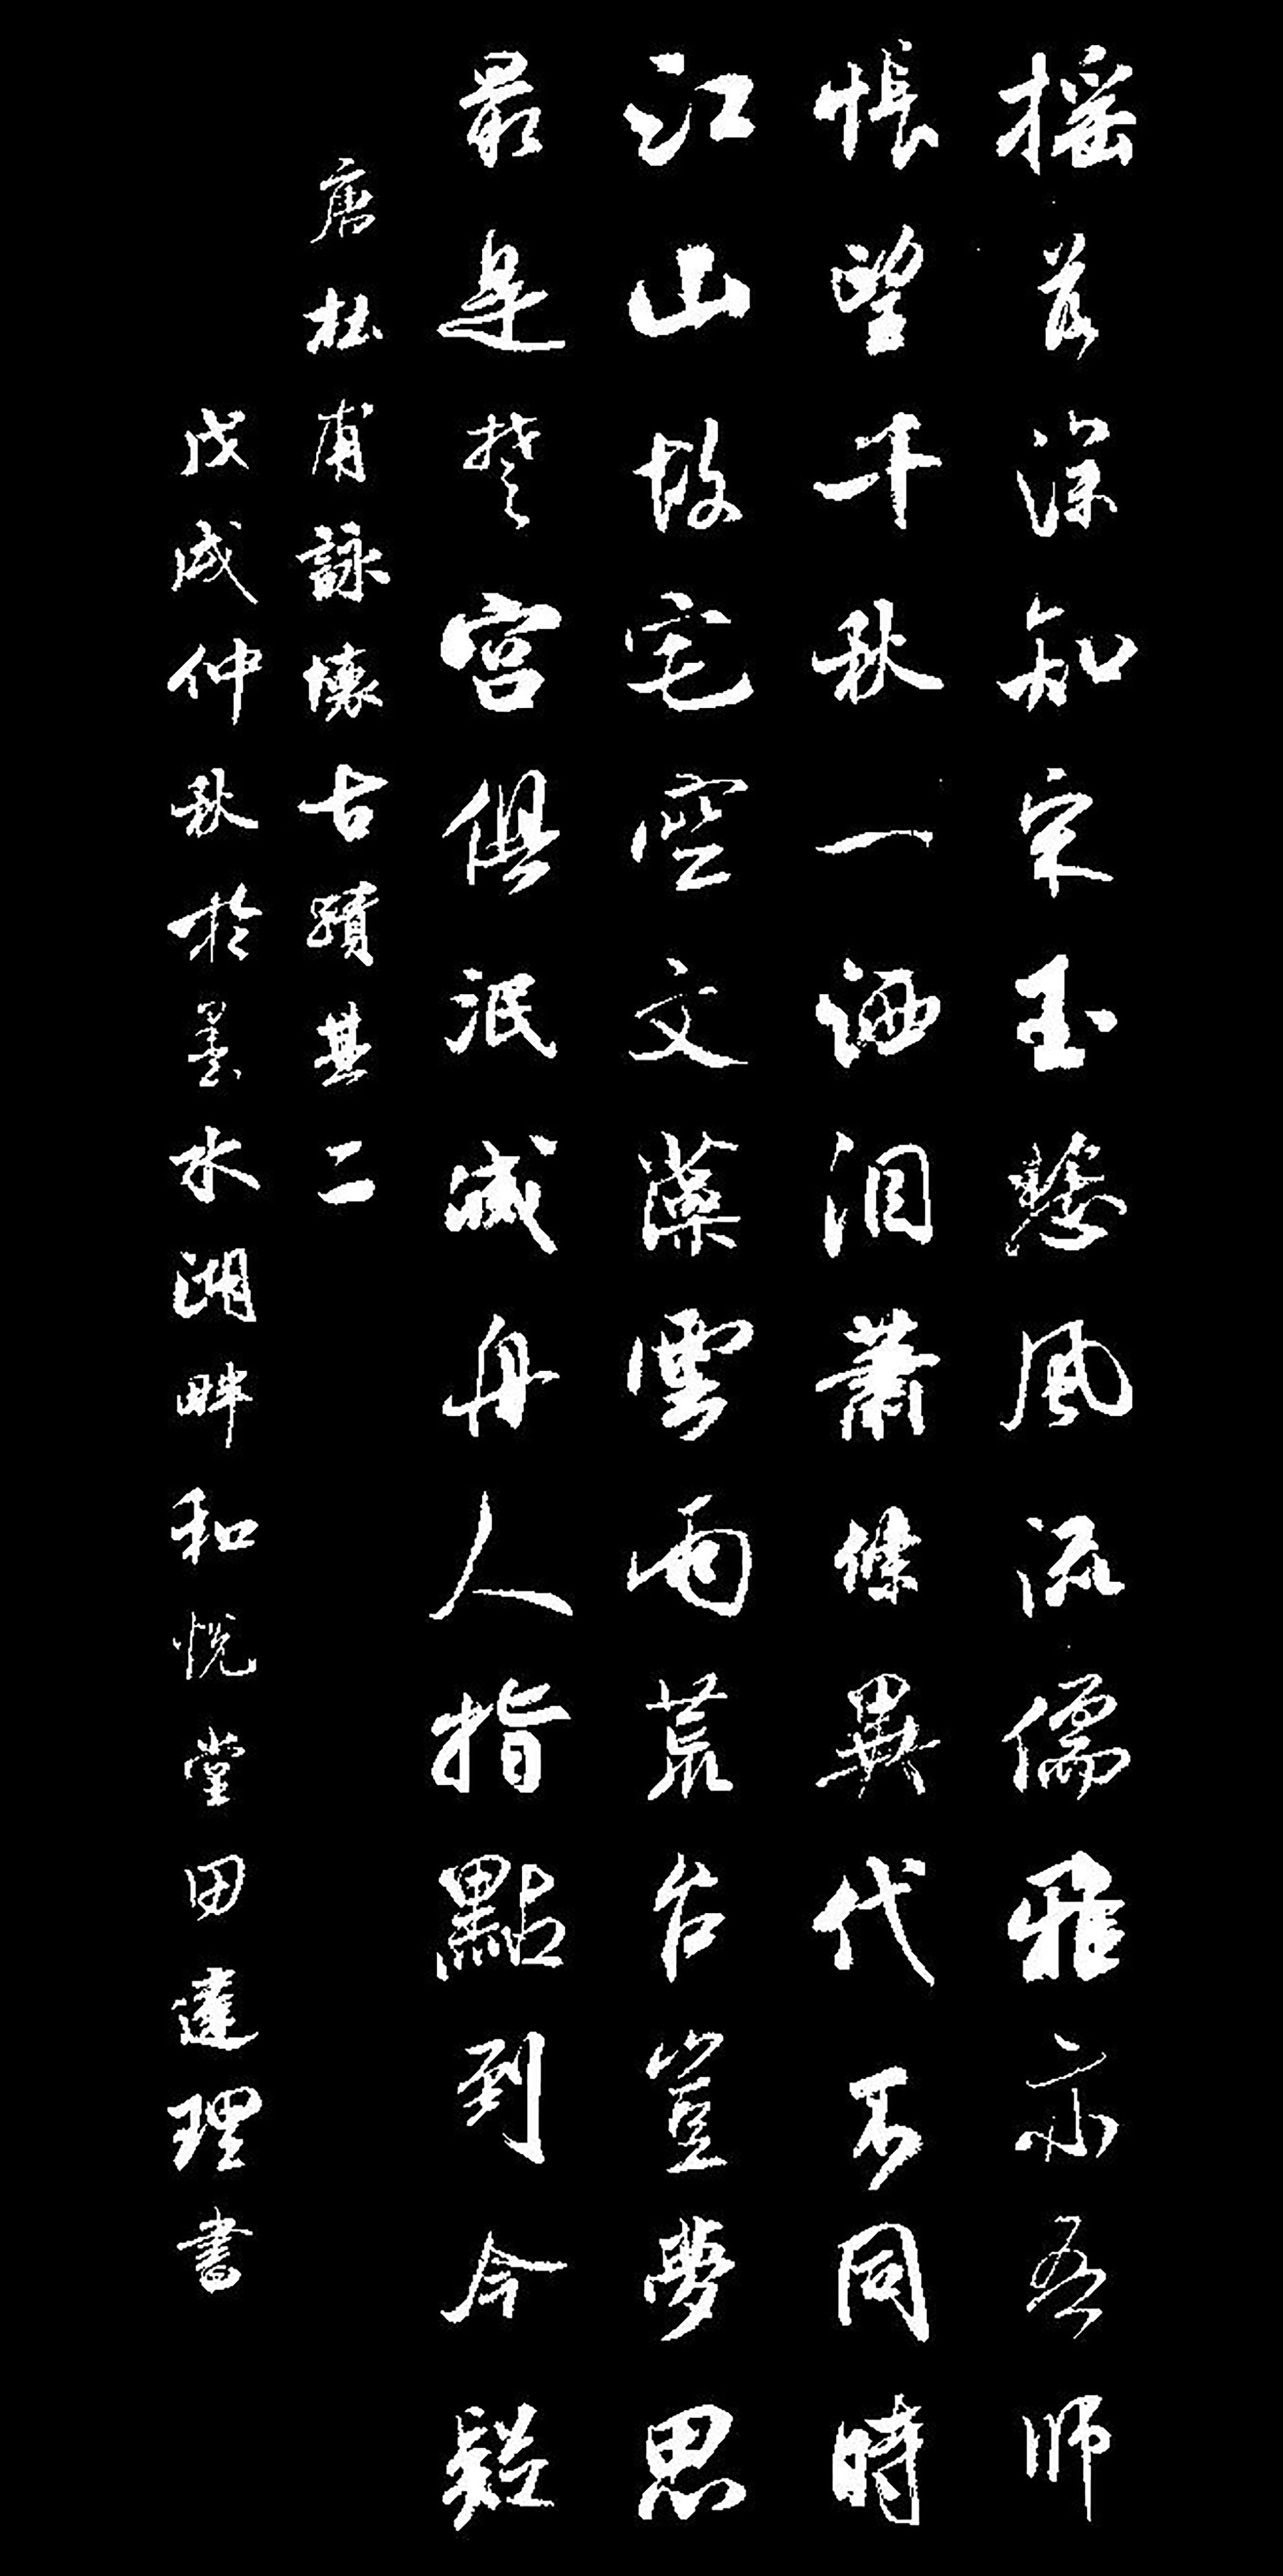 摇落深知宋玉悲風流儒雅亦吾師
悵望千秋一洒泪蕭條異代不同時
江山故宅空文藻雲雨荒台豈夢思
最是楚宮俱泯滅舟人指點到今疑
唐杜甫詠懷古蹟其二
戊戌仲秋於墨水湖畔和悦堂田達理書